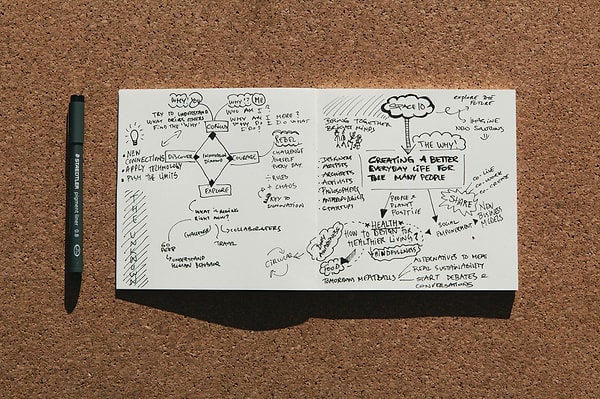 STAEDTLER
pigment liner 0.8
WHY YOU
TRY TO UNDERSTAND
WHAT DRIVES OTHERS
FIND THE "WHY"
WHY? ME
WHO AM I?
WHY AM I HERE?
WHY DO I DO WHAT
I DO?
CONNECT
DISCOVER
COURAGE
EXPLORE
• NEW
CONNECTIONS
• APPLY TECHNOLOGY
• PUSH THE LIMITS
THE UNKNOWN
REBEL
CHALLENGE
YOURSELF
EVERY DAY.
÷ RULES
+ CHAOS
KEY TO
INNOVATION
WHAT IS
RIGHT NOW?
CHALLENGE
COLLABORATORS
TRAVEL
GO
DEEP
UNDERSTAND
HUMAN BEHAVIOR
SPACE10
EXPLORE THE
FUTURE
IMAGINE
NEW SOLUTIONS
BRING TOGETHER
BRIGHT MINDS
• DESIGNERS
• ARTISTS
• ARCHITECTS
• ACTIVISTS
• PHILOSOPHERS
• ANTHROPOLOGISTS
• STARTUPS
THE WHY!
CREATING A BETTER
EVERYDAY LIFE FOR
THE MANY PEOPLE
PEOPLE &
PLANET
POSITIVE
CO-LIVE
CO-WORK
CO-CREATE
SHARE
NEW
BUSINESS
MODELS
SOCIAL
HEALTH
HOW TO DESIGN FOR
HEALTHIER LIVING?
MINDFULLNESS
CIRCULAR
FOOD
TOMORROWS MEATBALLS
ALTERNATIVES TO MEAT
REAL SUSTAINABILITY
START DEBATES &
CONVERSATIONS